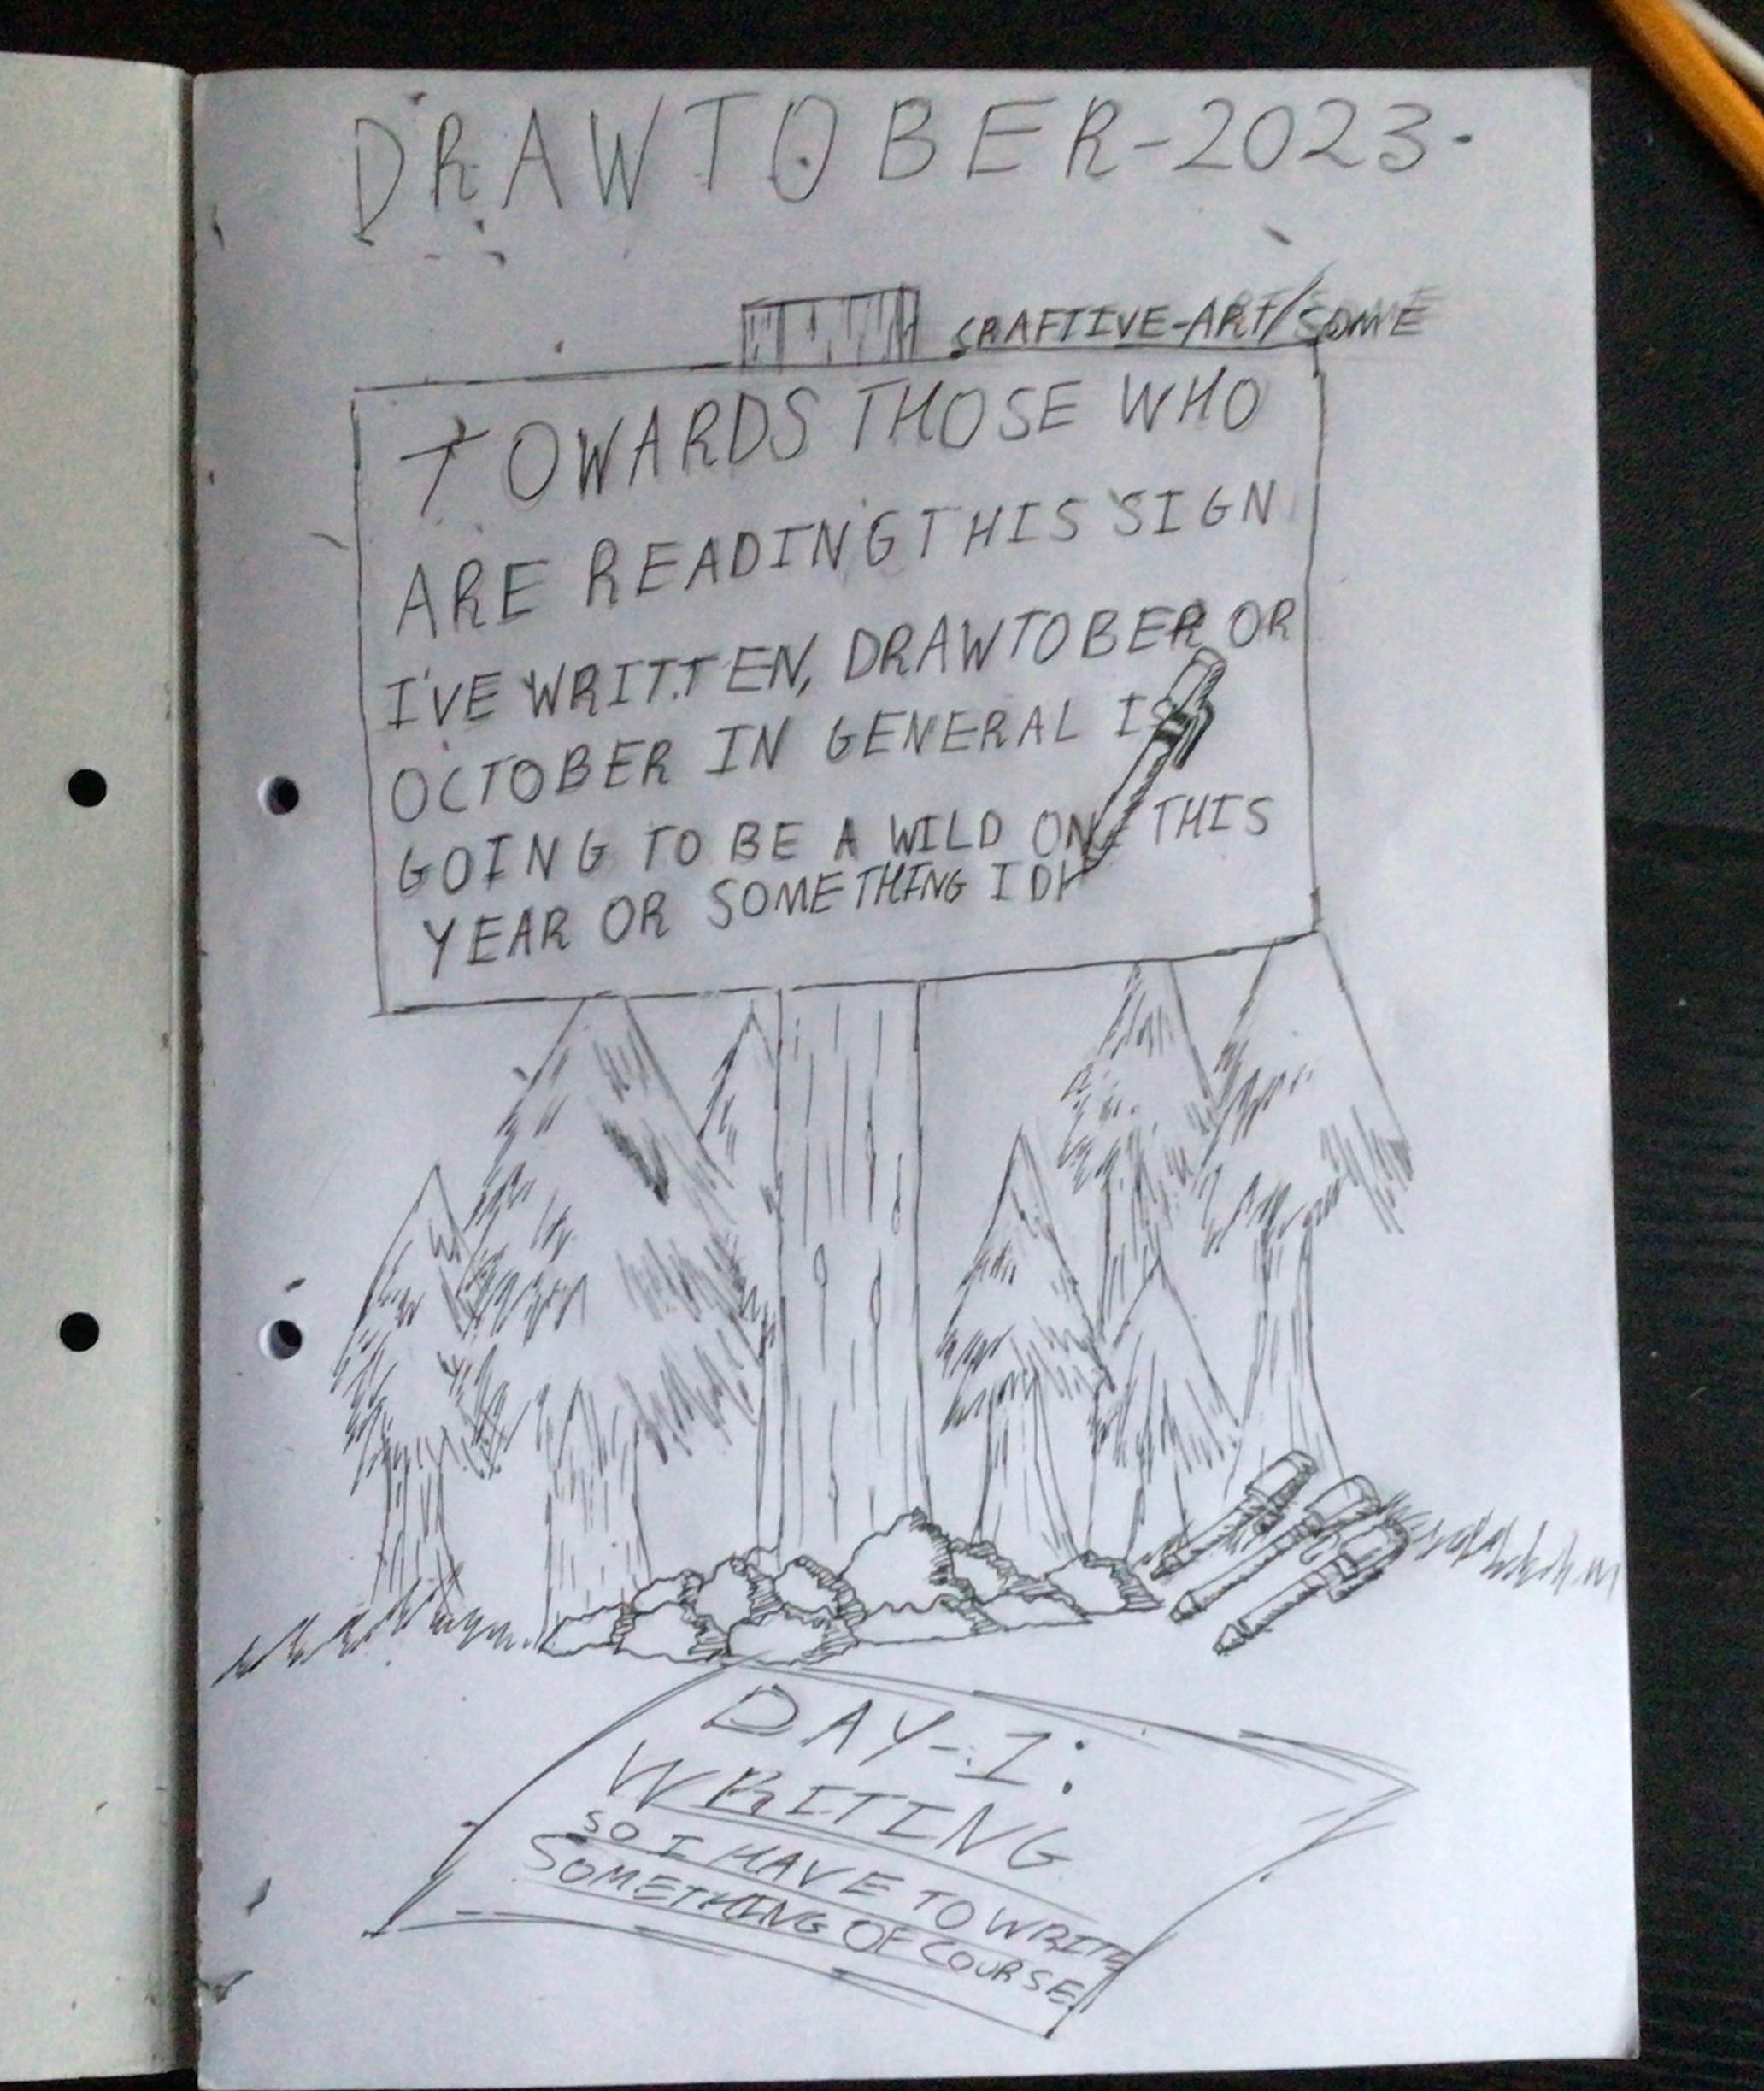 DRAWTOBER-2023.
CRAFTIVE-ART/SOME
TOWARDS THOSE WHO
ARE READING THIS SIGN
I'VE WRITTEN, DRAWTOBER OR
OCTOBER IN GENERAL IS
GOING TO BE A WILD ONE THIS
YEAR OR SOMETHING IDK
DAY-1:
WRITING
SO I HAVE TO WRITE
SOMETHING OF COURSE